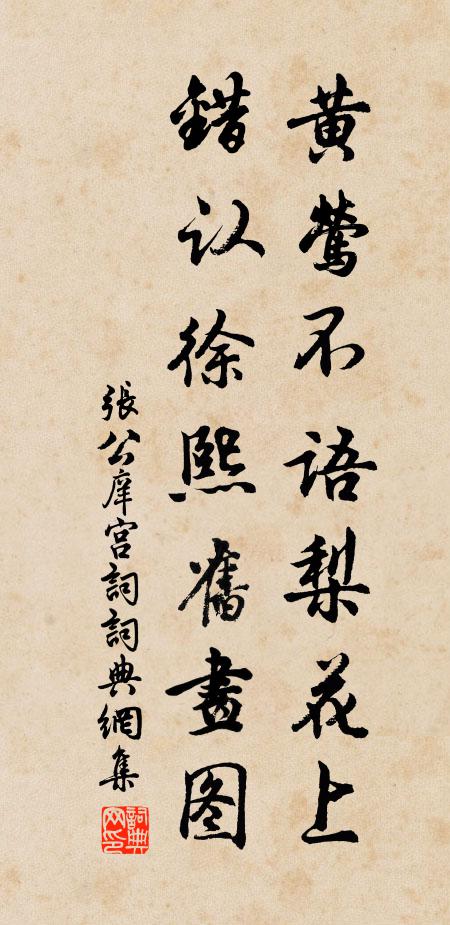 黄莺不语梨花上
错认徐熙旧畫图
張公庠宫詞詞典網集
詞典网印